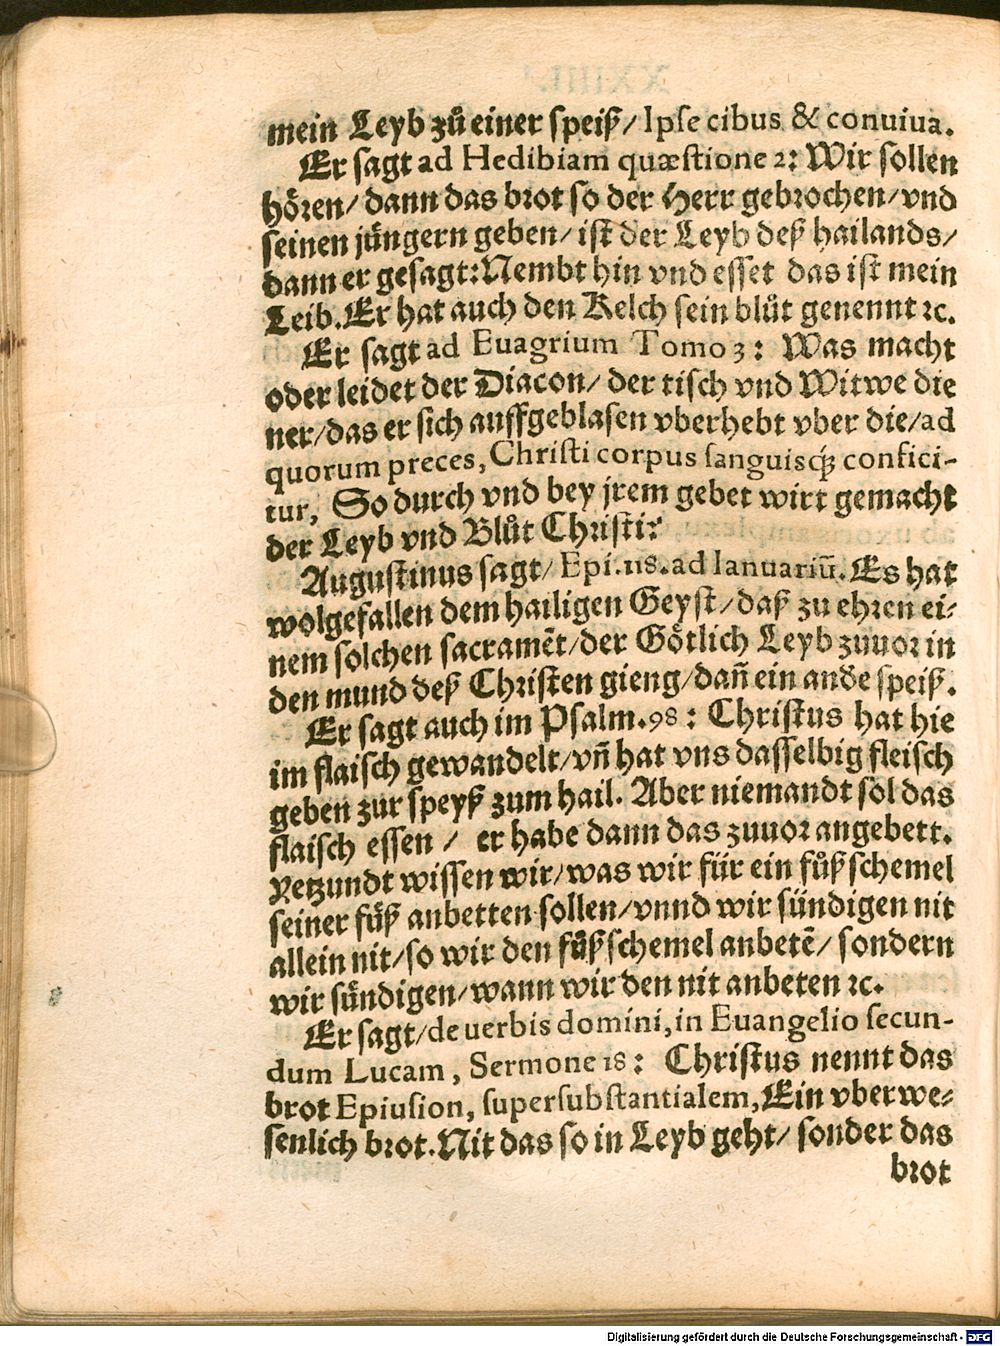 mein Leyb zů einer speiß/ Ipse cibus & conuiua.
Er sagt ad Hedibiam quæstione 2: Wir sollen
hören/ dann das brot so der Herr gebrochen/ vnd
seinen jüngern geben/ ist der Leyb deß hailands/
dann er gesagt: Nembt hin vnd esset das ist mein
Leib. Er hat auch den Kelch sein blůt genennt ꝛc.
Er sagt ad Euagrium Tomo 3: Was macht
oder leidet der Diacon/ der tisch vnd Witwe die
ner/ das er sich auffgeblasen vberhebt vber die/ ad
quorum preces, Christi corpus sanguisq́; confici-
tur, So durch vnd bey jrem gebet wirt gemacht
der Leyb vnd Blůt Christi?
Augustinus sagt/ Epi. 118. ad Ianuariũ. Es hat
wolgefallen dem hailigen Geyst/ daß zu ehren ei-
nem solchen sacramẽt/ der Götlich Leyb zuuor in
den mund deß Christen gieng/ dañ ein andꝛe speiß.
Er sagt auch im Psalm. 98: Christus hat hie
im flaisch gewandelt/ vñ hat vns dasselbig fleisch
geben zur speyß zum hail. Aber niemandt sol das
flaisch essen/ er habe dann das zuuor angebett.
Yetzundt wissen wir/ was wir für ein fůßschemel
seiner füß anbetten sollen/ vnnd wir sündigen nit
allein nit/ so wir den fůßschemel anbetẽ/ sondern
wir sündigen/ wann wir den nit anbeten ꝛc.
Er sagt/ de uerbis domini, in Euangelio secun-
dum Lucam, Sermone 18: Christus nennt das
brot Epiusion, supersubstantialem, Ein vberwe-
senlich brot. Nit das so in Leyb geht/ sonder das
brot
Digitalisierung gefördert durch die Deutsche Forschungsgemeinschaft - DFG